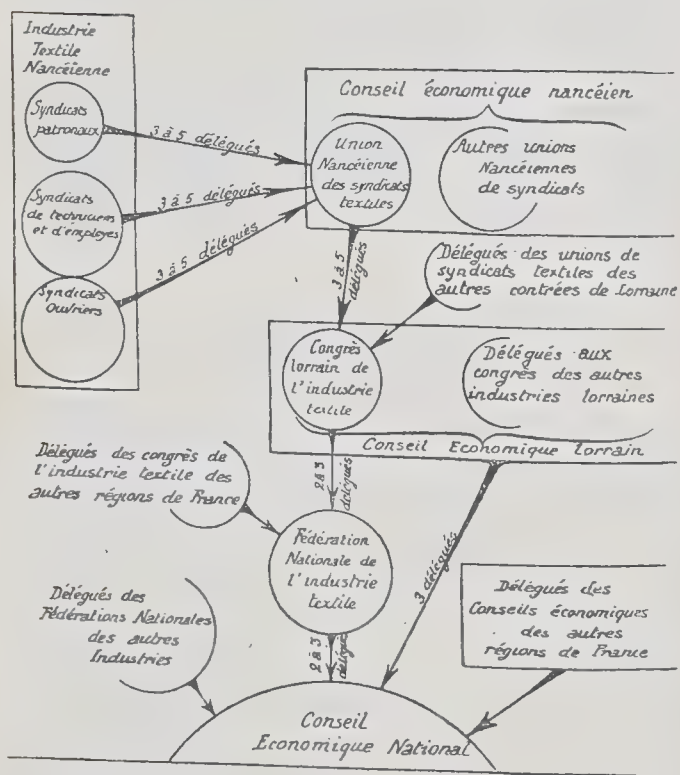 Industrie
Textile
Nancéienne
Syndicats
patronaux
Syndicats
de techniciens
et d'employes
Syndicats
Ouvriers
3 à 5 délégués
3 à 5 délégués
3 à 5 délégués
Conseil économique nancéien
Union
Nancéienne
des syndicats
textiles
Autres unions
Nancéiennes
de syndicats
3 à 5
délégués
Délégués des unions de
syndicats textiles des
autres contrées de Lorraine
Congrès
lorrain de
l'industrie
textile
Délégués aux
congrès des autres
industries lorraines
Conseil Economique lorrain
Délégués des congrès de
l'industrie textile des
autres régions de France
2 à 3
délégués
Fédération
Nationale de
l'industrie
textile
3 délégués
Délégués des
Fédérations Nationales
des autres
Industries
2 à 3
délégués
Délégués des
Conseils économiques
des autres
régions de France
Conseil
Economique National